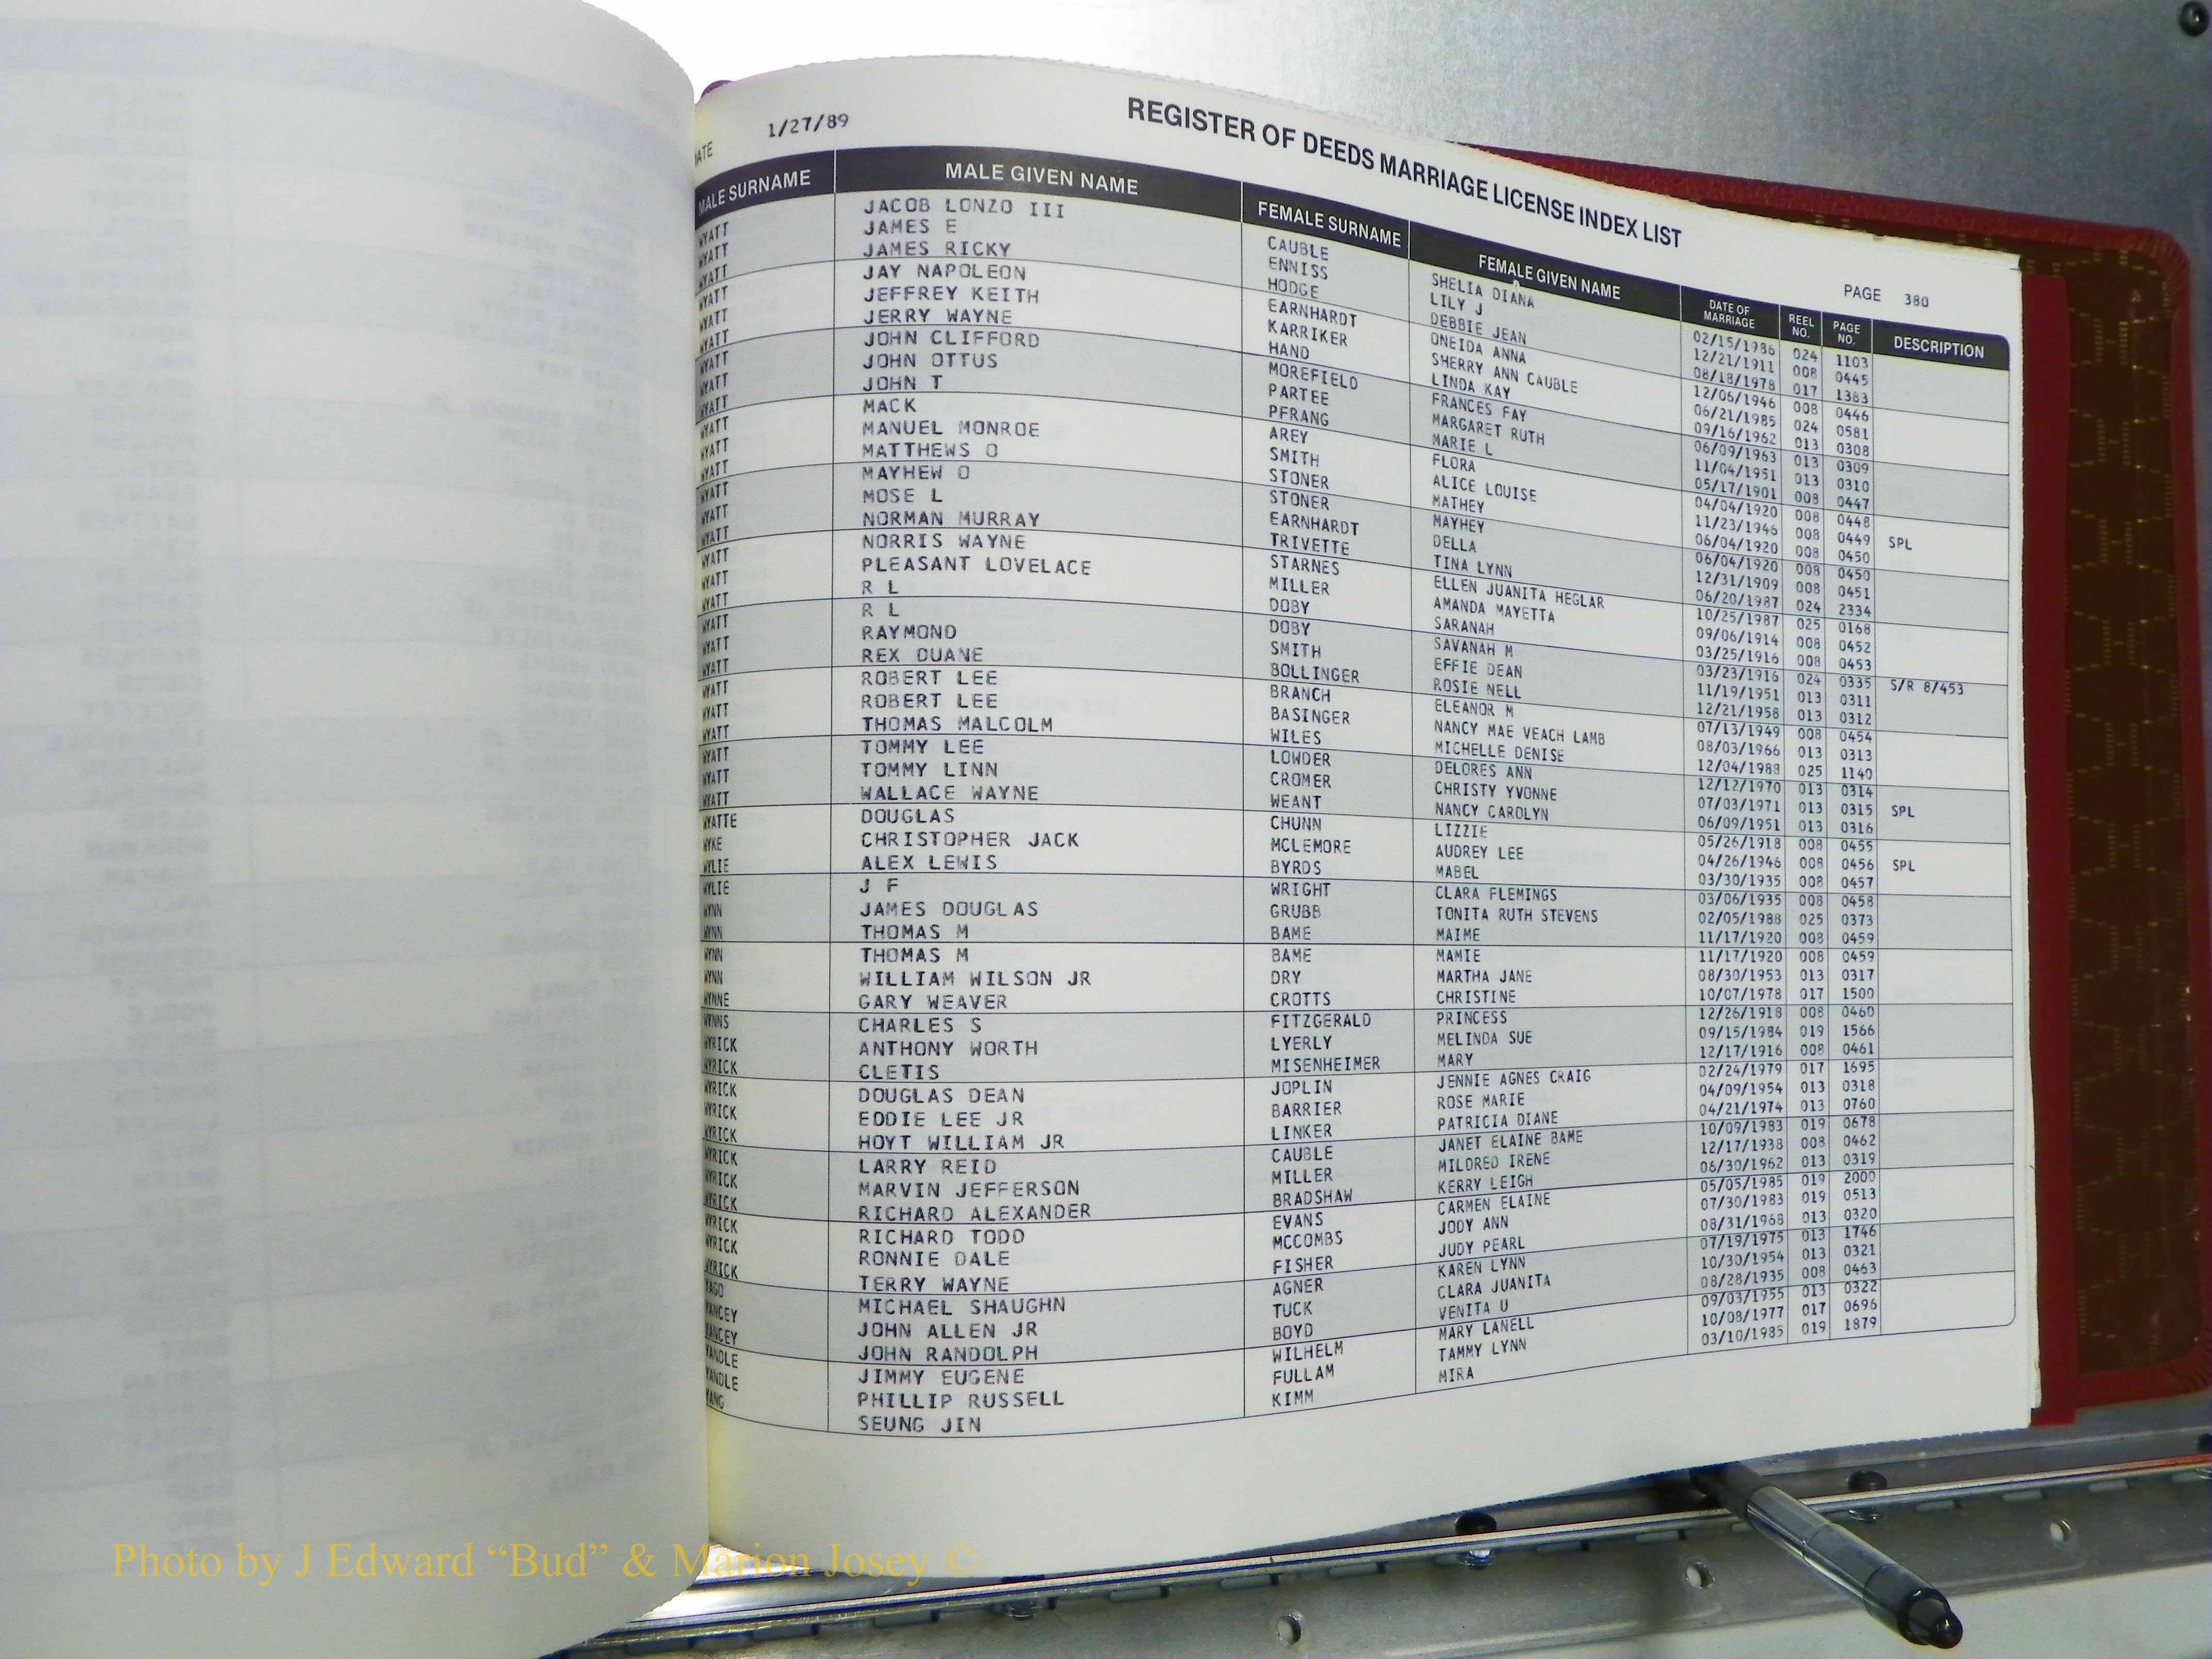 DATE 1/27/89
REGISTER OF DEEDS MARRIAGE LICENSE INDEX LIST
PAGE 380
MALE SURNAME MALE GIVEN NAME FEMALE SURNAME FEMALE GIVEN NAME DATE OF MARRIAGE REEL NO. PAGE NO. DESCRIPTION
WYATT JACOB LONZO III CAUBLE SHELIA DIANA 02/15/1986 024 1103
WYATT JAMES E ENNISS LILY J 12/21/1911 008 0445
WYATT JAMES RICKY HODGE DEBBIE JEAN 08/18/1978 017 1383
WYATT JAY NAPOLEON EARNHARDT ONEIDA ANNA 12/06/1946 008 0446
WYATT JEFFREY KEITH KARRIKER SHERRY ANN CAUBLE 06/21/1985 024 0581
WYATT JERRY WAYNE HAND LINDA KAY 09/16/1962 013 0308
WYATT JOHN CLIFFORD MOREFIELD FRANCES FAY 06/09/1963 013 0309
WYATT JOHN OTTUS PARTEE MARGARET RUTH 11/04/1951 013 0310
WYATT JOHN T PFRANG MARIE L 05/17/1901 008 0447
WYATT MACK AREY FLORA 04/04/1920 008 0448
WYATT MANUEL MONROE SMITH ALICE LOUISE 11/23/1946 008 0449 SPL
WYATT MATTHEWS O STONER MATHEY 06/04/1920 008 0450
WYATT MAYHEW O STONER MAYHEY 06/04/1920 008 0450
WYATT MOSE L EARNHARDT DELLA 12/31/1909 008 0451
WYATT NORMAN MURRAY TRIVETTE TINA LYNN 06/20/1987 024 2334
WYATT NORRIS WAYNE STARNES ELLEN JUANITA HEGLAR 10/25/1987 025 0168
WYATT PLEASANT LOVELACE MILLER AMANDA MAYETTA 09/06/1914 008 0452
WYATT R L DOBY SARANAH 03/25/1916 008 0453
WYATT R L DOBY SAVANAH M 03/23/1916 024 0335 S/R 8/453
WYATT RAYMOND SMITH EFFIE DEAN 11/19/1951 013 0311
WYATT REX DUANE BOLLINGER ROSIE NELL 12/21/1958 013 0312
WYATT ROBERT LEE BRANCH ELEANOR M 07/13/1949 008 0454
WYATT ROBERT LEE BASINGER NANCY MAE VEACH LAMB 08/03/1966 013 0313
WYATT THOMAS MALCOLM WILES MICHELLE DENISE 12/04/1988 025 1140
WYATT TOMMY LEE LOWDER DELORES ANN 12/12/1970 013 0314
WYATT TOMMY LINN CROMER CHRISTY YVONNE 07/03/1971 013 0315 SPL
WYATT WALLACE WAYNE WEANT NANCY CAROLYN 06/09/1951 013 0316
WYATTE DOUGLAS CHUNN LIZZIE 05/26/1918 008 0455
WYKE CHRISTOPHER JACK MCLEMORE AUDREY LEE 04/26/1946 008 0456 SPL
WYLIE ALEX LEWIS BYRDS MABEL 03/30/1935 008 0457
WYLIE J F WRIGHT CLARA FLEMINGS 03/06/1935 008 0458
WYNN JAMES DOUGLAS GRUBB TONITA RUTH STEVENS 02/05/1988 025 0373
WYNN THOMAS M BAME MAIME 11/17/1920 008 0459
WYNN THOMAS M BAME MAMIE 11/17/1920 008 0459
WYNN WILLIAM WILSON JR DRY MARTHA JANE 08/30/1953 013 0317
WYNNE GARY WEAVER CROTTS CHRISTINE 10/07/1978 017 1500
WYNNS CHARLES S FITZGERALD PRINCESS 12/26/1918 008 0460
WYRICK ANTHONY WORTH LYERLY MELINDA SUE 09/15/1984 019 1566
WYRICK CLETIS MISENHEIMER MARY 12/17/1916 008 0461
WYRICK DOUGLAS DEAN JOPLIN JENNIE AGNES CRAIG 02/24/1979 017 1695
WYRICK EDDIE LEE JR BARRIER ROSE MARIE 04/09/1954 013 0318
WYRICK HOYT WILLIAM JR LINKER PATRICIA DIANE 04/21/1974 013 0760
WYRICK LARRY REID CAUBLE JANET ELAINE BAME 10/09/1983 019 0678
WYRICK MARVIN JEFFERSON MILLER MILDRED IRENE 12/17/1938 008 0462
WYRICK RICHARD ALEXANDER BRADSHAW KERRY LEIGH 06/30/1962 013 0319
WYRICK RICHARD TODD EVANS CARMEN ELAINE 05/05/1985 019 2000
WYRICK RONNIE DALE MCCOMBS JODY ANN 07/30/1983 019 0513
WYRICK TERRY WAYNE FISHER JUDY PEARL 08/31/1968 013 0320
YAGO MICHAEL SHAUGHN AGNER KAREN LYNN 07/19/1975 013 1746
YANCEY JOHN ALLEN JR TUCK CLARA JUANITA 10/30/1954 013 0321
YANCEY JOHN RANDOLPH BOYD VENITA U 08/28/1935 008 0463
YANDLE JIMMY EUGENE WILHELM MARY LANELL 09/03/1955 013 0322
YANDLE PHILLIP RUSSELL FULLAM TAMMY LYNN 10/08/1977 017 0696
YANG SEUNG JIN KIMM MIRA 03/10/1985 019 1879
Photo by J Edward “Bud” & Marion Josey ©